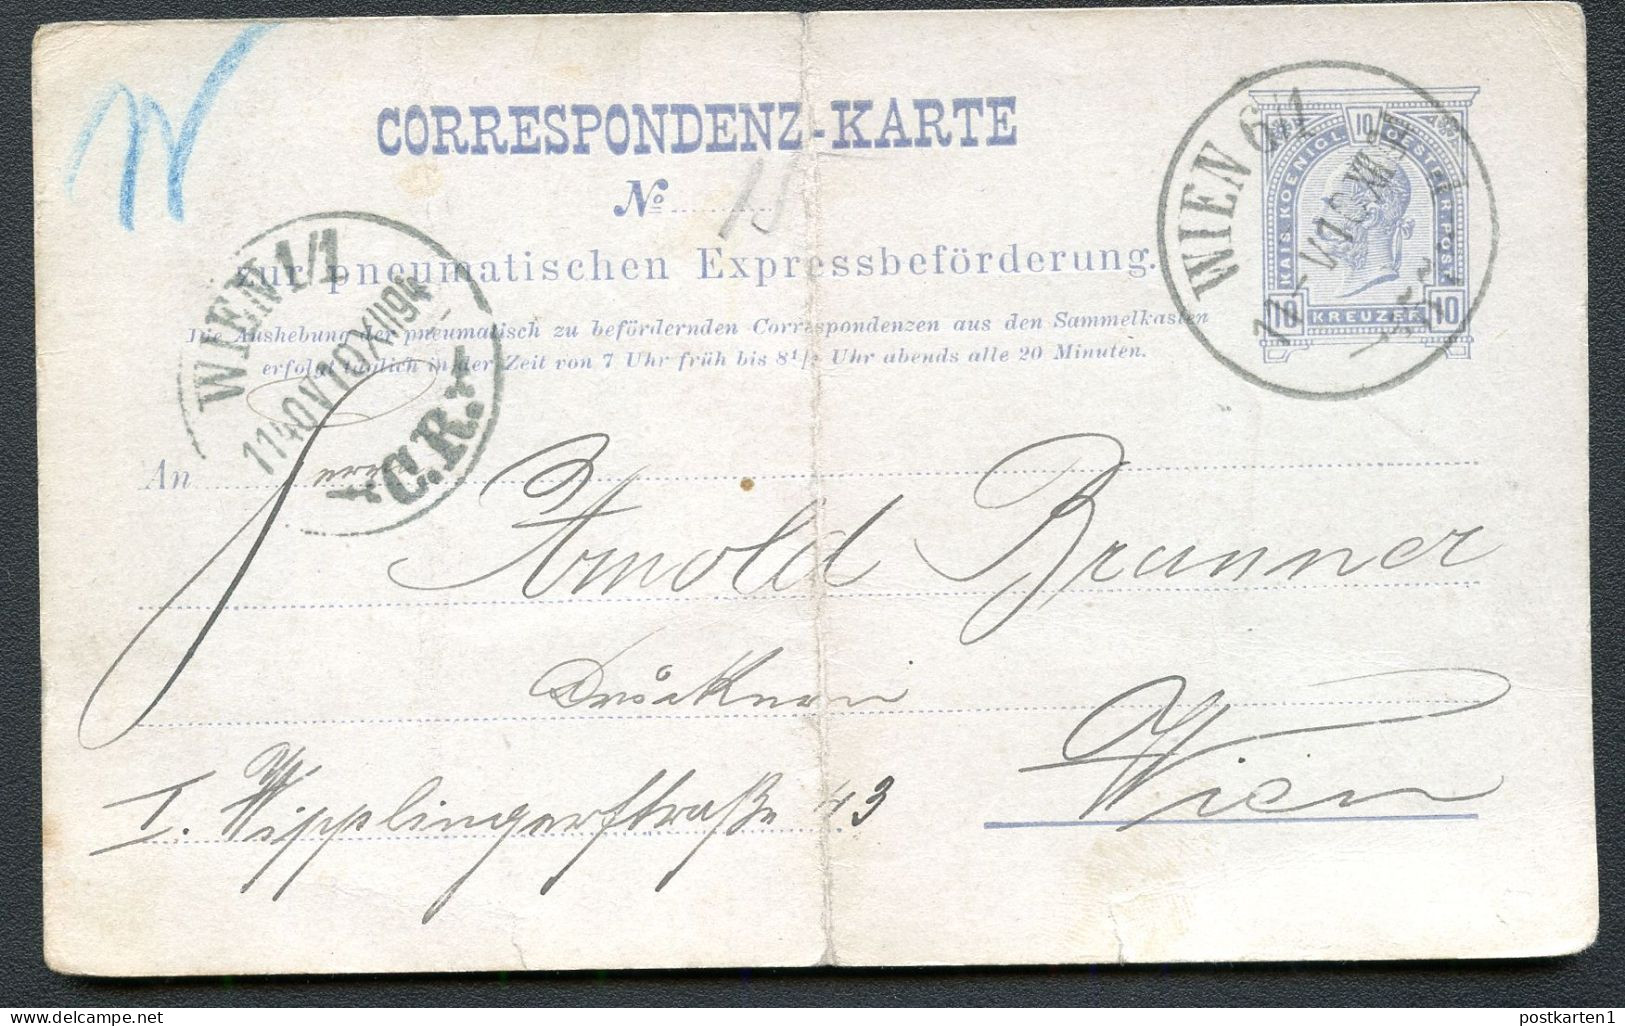 W
CORRESPONDENZ-KARTE
No 15
für pneumatischen Expressbeförderung.
Die Aushebung der pneumatisch zu befördernden Correspondenzen aus den Sammelkasten
erfolgt täglich in der Zeit von 7 Uhr früh bis 8 1/2 Uhr abends alle 20 Minuten.
WIEN 1/1
1140V 10 XII 94
C.R.
WIEN 6/1
KAIS. KOENIGL. 10 OESTERR. POST
10 KREUZER 10
An Herrn
Arnold Brunner
Wien
I. Wipplingerstraße 43
postkarten1